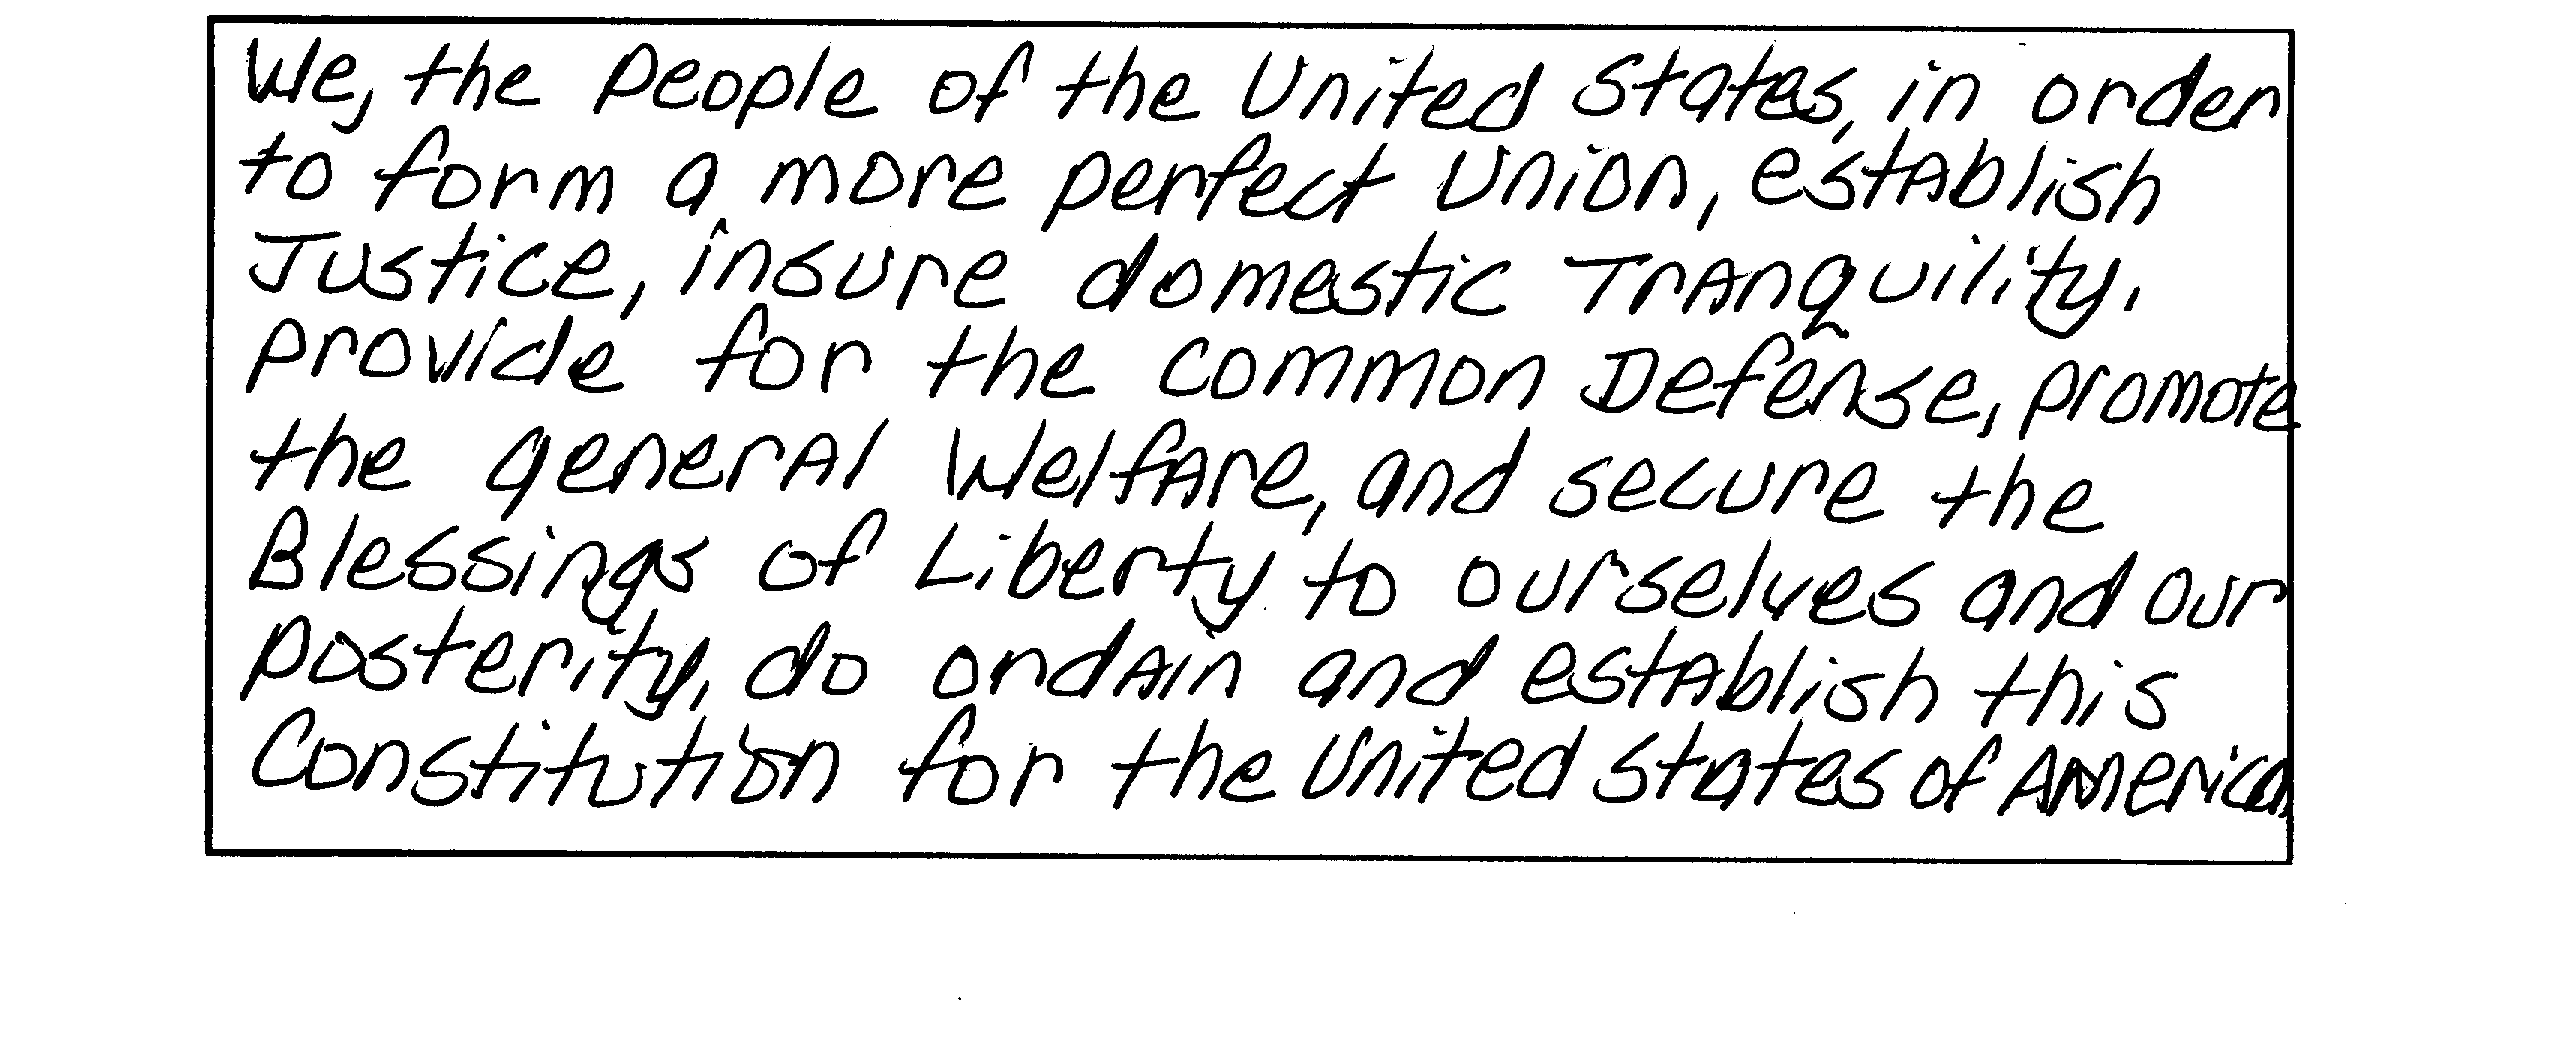 We, the People of the United States, in order
to form a more perfect Union, establish
Justice, insure domestic Tranquility,
provide for the common Defense, promote
the general Welfare, and secure the
Blessings of Liberty to ourselves and our
posterity, do ordain and establish this
Constitution for the United States of America.